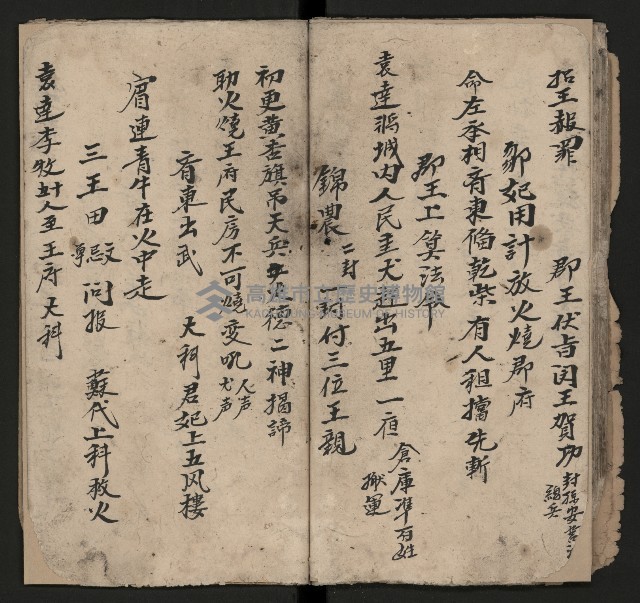 招王報罪 郡王伏旨闵王賀功 封孫安
總兵
鄒妃用計放火燒郡府
命左丞相育東俻乾柴有人阻擋先斬
郡王上算法卒
袁達 城内人民主犬 出五里一宿 倉庫準百姓
搬運
錦農 二封 一封付三位王親
初更黄杏旗吊天兵 德二神揭諦
助火燒王府民房不可燒变吼 人声
犬声
育東出武 天科君妃上五风楼
育連青牛在火中走
三王田 殿问报 蘇代上科救火
袁達李牧 人至王府 天科
高雄市立歷史博物館
KAOHSIUNG MUSEUM OF HISTORY